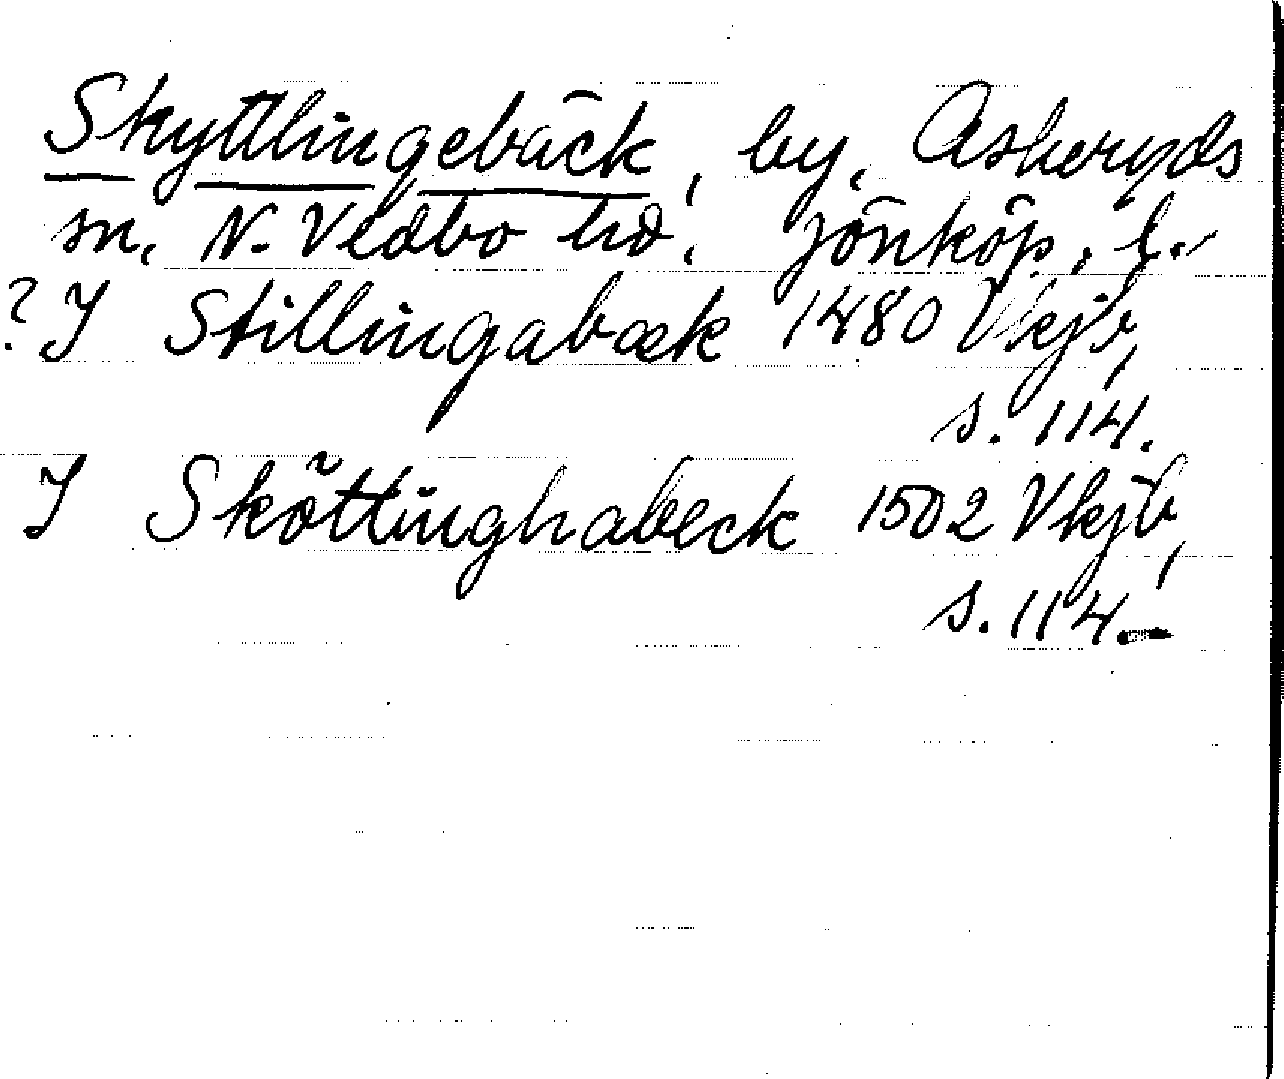 Skyttlingebäck, by, Askeryds
sn, N. Vedbo hd. Jönköp. l.
? J Stillingabæk 1480 Vkjb,
s. 114.
J Sköttlinghabeck 1502 Vkjb,
s. 114.